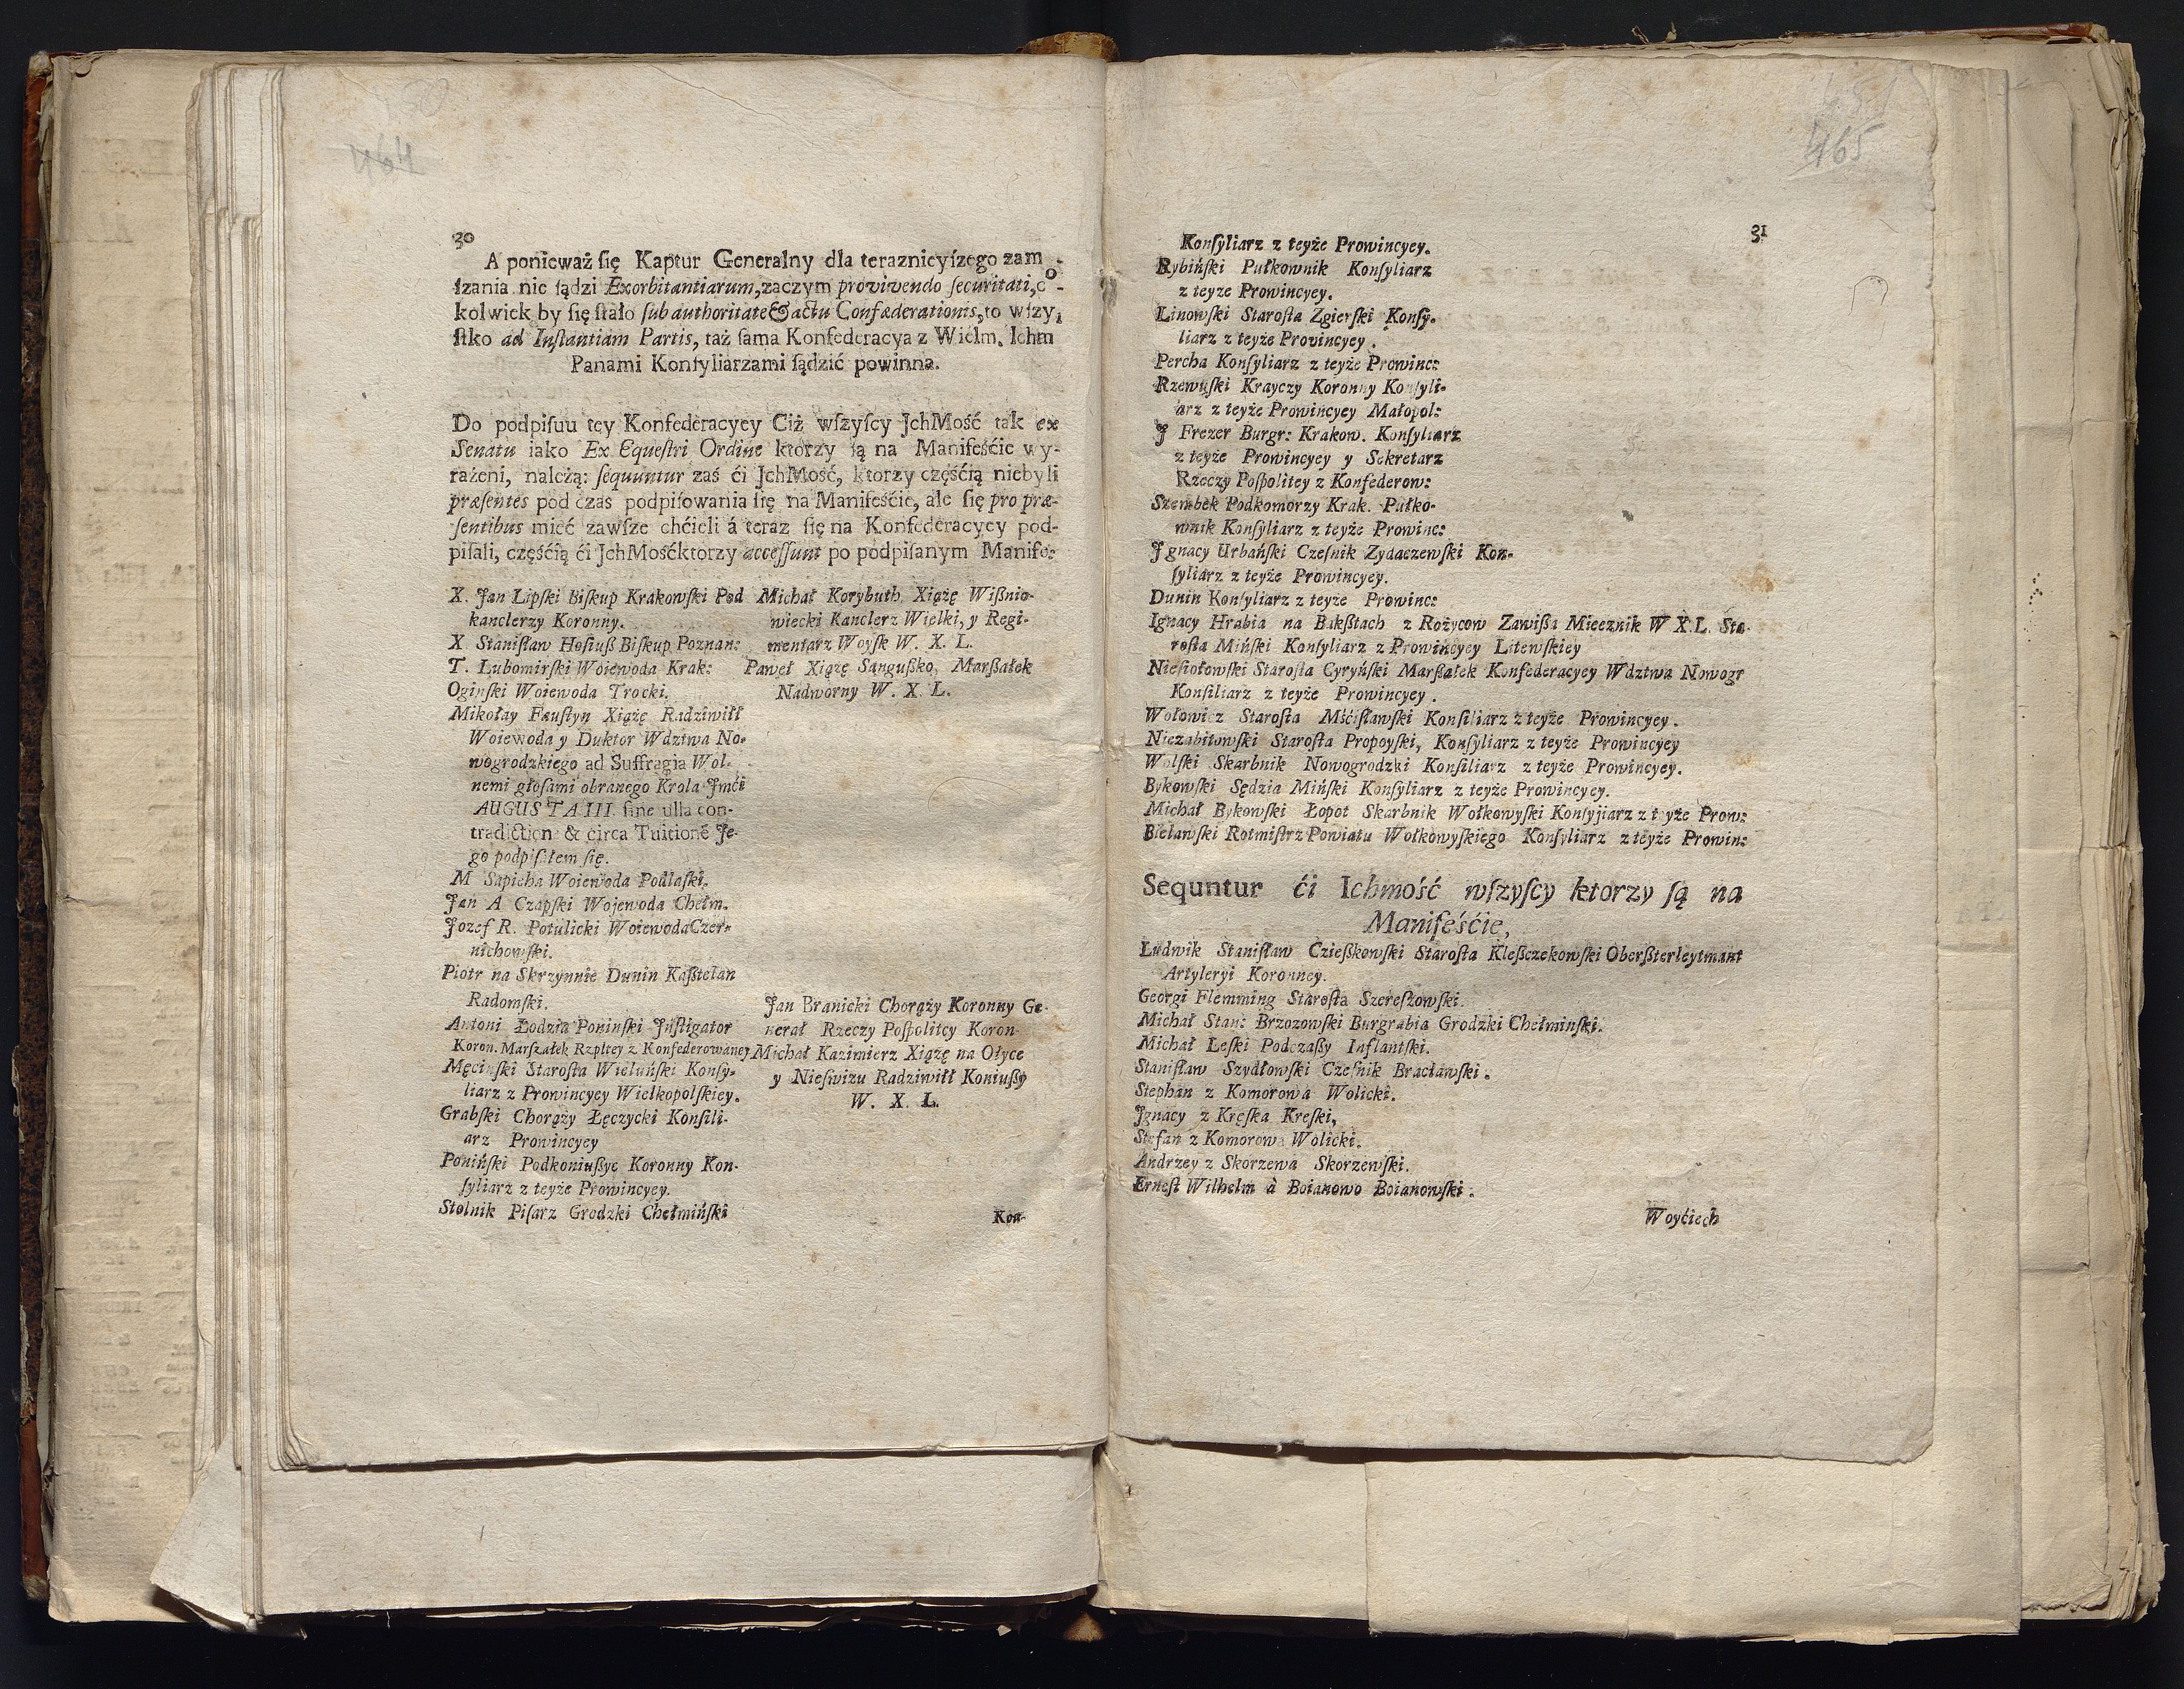 464
30
A ponieważ ſię Kaptur Generalny dla teraznieyſzego zam
ſzania nie ſądzi Exorbitantiarum, zaczym providendo ſecuritati, co-
kolwiek by ſię ſtało ſub authoritate & actu Confæderationis, to wſzy,
ſtko ad Inſtantiam Partis, taż ſama Konfederacya z Wielm. Ichm
Panami Konſyliarzami ſądzić powinna.
Do podpiſuu tey Konfederacyey Ciż wſzyſcy JchMość tak ex
Senatu iako Ex Equeſtri Ordine ktorzy ſą na Manifeśćie wy-
rażeni, należą: ſequuntur zaś ći JchMość, ktorzy częśćią niebyli
præſentes pod czas podpiſowania ſię na Manifeśćie, ale ſię pro præ-
ſentibus mieć zawſze chćieli á teraz ſię na Konfederacyey pod-
piſali, częśćią ći JchMośćktorzy acceſſunt po podpiſanym Manife:
X. Jan Lipſki Biſkup Krakowſki Pod
kanclerzy Koronny.
X Staniſław Hoſiuß Biſkup Poznan:
T. Lubomirſki Woiewoda Krak:
Oginſki Woiewoda Trocki.
Mikołay Fauſtyn Xiążę Radziwiłł
Woiewoda y Duktor Wdztwa No-
wogrodzkiego ad Suffragia Wol-
nemi głoſami obranego Krola Jmći
AUGUSTA III. ſine ulla con-
tradiction: & circa Tuitionē Je-
go podpiſałem ſię.
M Sapieha Woiewoda Podlaſki,
Jan A Czapſki Wojewoda Chełm.
Jozef R. Potulicki WoiewodaCzer-
nichowſki.
Piotr na Skrzynnie Dunin Kaßtelan
Radomſki.
Antoni Łodzia Poninſki Jnſtigator
Koron. Marſzałek Rzpltey z Konfederowaney
Męcinſki Staroſta Wieluńſki Konſy-
liarz z Prowincyey Wielkopolſkiey.
Grabſki Chorąży Łęczycki Konſili-
arz Prowincyey
Ponińſki Podkoniußyc Koronny Kon-
ſyliarz z teyże Prowincyey.
Stolnik Piſarz Grodzki Chełmińſki
Michał Korybuth Xiążę Wißnio-
wiecki Kanclerz Wielki, y Regi-
mentarz Woyſk W. X. L.
Paweł Xiążę Sangußko, Marßałek
Nadworny W. X. L.
Jan Branicki Chorąży Koronny Ge-
nerał Rzeczy Poſpolitey Koron-
Michał Kazimierz Xiążę na Ołyce
y Nieſwizu Radziwiłł Koniußy
W. X. L.
Kon-
465
31
Konſyliarz z teyże Prowincyey.
Rybińſki Pułkownik Konſyliarz
z teyze Prowincyey.
Linowſki Staroſta Zgierſki Konſy-
liarz z teyże Provincyey.
Percha Konſyliarz z teyże Prowinc:
Rzewuſki Krayczy Koronny Konſyli-
arz z teyże Prowincyey Małopol:
J Frezer Burgr: Krakow. Konſyliarz
z teyże Prowincyey y Sekretarz
Rzeczy Poſpolitey z Konfederow:
Szembek Podkomorzy Krak. Pułko-
wnik Konſyliarz z teyże Prowinc:
Jgnacy Urbańſki Czeſnik Zydaczewſki Kon-
ſyliarz z teyże Prowincyey.
Dunin Konſyliarz z teyże Prowinc:
Ignacy Hrabia na Bakßtach z Rożycow Zawißa Miecznik W X.L. Sta-
roſta Mińſki Konſyliarz z Prowincyey Litewſkiey
Nieſiołowſki Staroſta Cyryńſki Marßałek Konfederacyey Wdztwa Nowogr
Konſiliarz z teyże Prowincyey.
Wołowicz Staroſta Mśćiſławſki Konſiliarz z teyże Prowincyey.
Niezabitowſki Staroſta Propoyſki, Konſyliarz z teyże Prowincyey
Wolſki Skarbnik Nowogrodzki Konſiliarz z teyże Prowincyey.
Bykowſki Sędzia Mińſki Konſyliarz z teyże Prowincyey.
Michał Bykowſki Łopot Skarbnik Wołkowyſki Konſyjiarz z t yże Prow:
Bielawſki Rotmiſtrz Powiatu Wołkowyſkiego Konſyliarz z teyże Prowin:
Sequntur ći Ichmość wſzyſcy ktorzy ſą na
Manifeśćie,
Ludwik Staniſław Czießkowſki Staroſta Kleßczekowſki Oberßterleytmant
Artyleryi Koronney.
Georgi Flemming Staroſta Szereſzowſki.
Michał Stan: Brzozowſki Burgrabia Grodzki Chełminſki.
Michał Leſki Podczaßy Inflantſki.
Staniſław Szydłowſki Czeſnik Bracławſki.
Stephan z Komorowa Wolicki.
Jgnacy z Kręſka Kreſki,
Stefan z Komorowa Wolicki.
Andrzey z Skorzewa Skorzewſki.
Erneſt Wilhelm à Boianowo Boianowſki.
Woyćiech